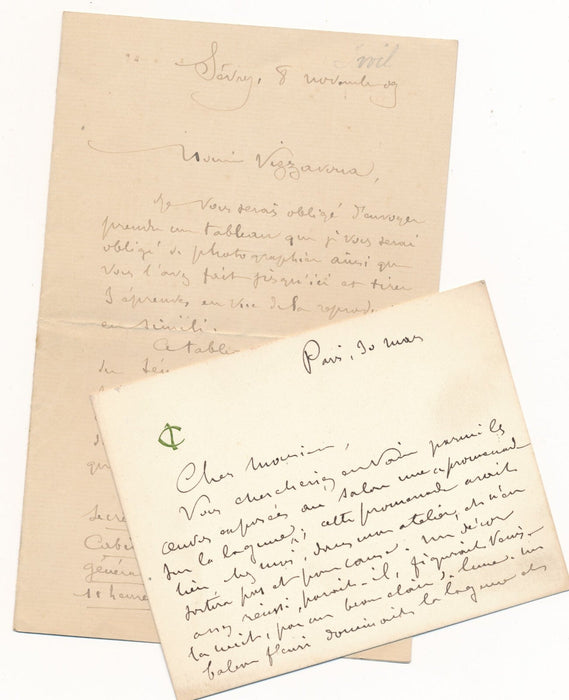 Sèvres, 8 novembre 09
Vizzavona,
Je vous serais obligé d'envoyer
prendre un tableau que je vous serai
obligé de photographier ainsi que
vous l'avez fait jusqu'ici et tirer
3 épreuves en vue de la
en simili.
Ce
du
Cabi
généra
11 heure
Paris, 30 mars
Cher Monsieur,
Vous chercheriez en vain parmi les
œuvres exposées au Salon une promenade
sur la lagune; cette promenade avait
lieu chez moi, dans mon atelier, et n'en
sortira pas et pour cause. Un décor
assez réussi, paraît-il, figurait Venise
la nuit, par un beau clair de lune. Un
balcon fleuri dominait la lagune